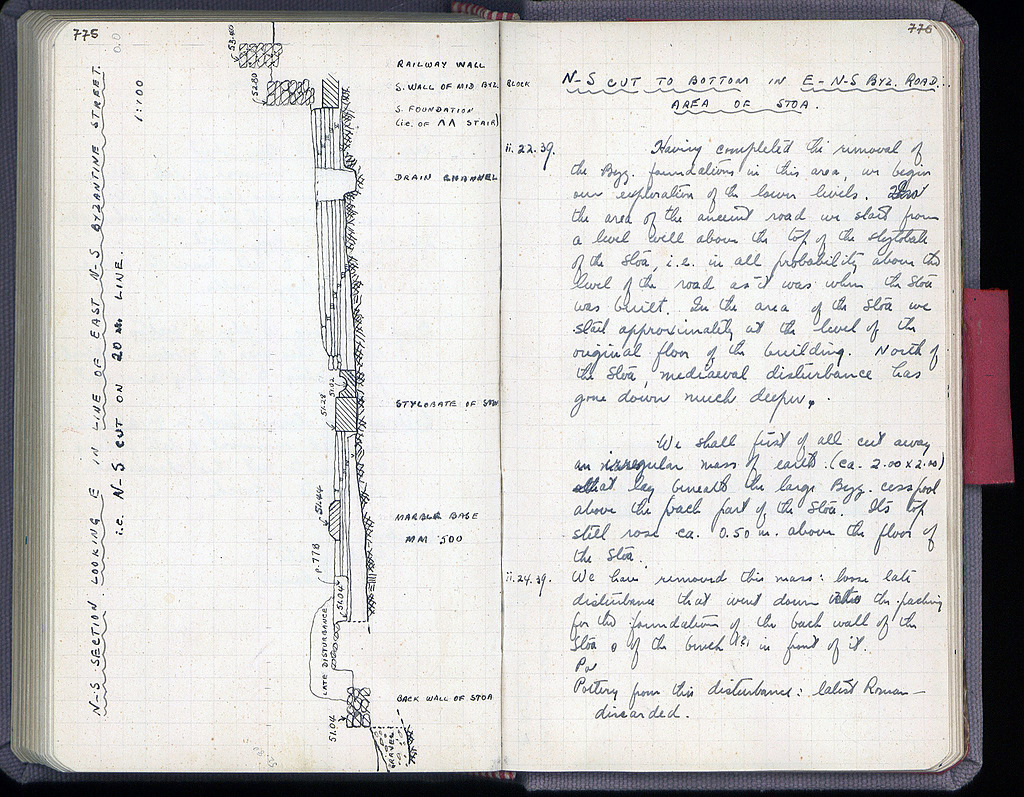 775
0.0
N-S SECTION LOOKING E IN LINE OF EAST N-S BYZANTINE STREET.
i.e. N-S CUT ON 20 m. LINE.
1:100
53.00
52.80
RAILWAY WALL
S. WALL OF MID BYZ. BLOCK
S. FOUNDATION
(i.e. OF ΛΛ STAIR)
DRAIN CHANNEL
51.02
51.28
STYLOBATE OF STOA
51.44
MARBLE BASE
MM 500
P. 778
51.04
LATE DISTURBANCE
BACK WALL OF STOA
51.04
GRAVEL
776
N-S CUT TO BOTTOM IN E-N-S BYZ. ROAD:
AREA OF STOA.
ii.22.39. Having completed the removal of
the Byz. foundations in this area, we begin
our exploration of the lower levels. In
the area of the ancient road we start from
a level well above the top of the stylobate
of the Stoa, i.e. in all probability above the
level of the road as it was when the Stoa
was built. In the area of the Stoa we
start approximately at the level of the
original floor of the building. North of
the Stoa, mediaeval disturbance has
gone down much deeper.
We shall first of all cut away
an irregular mass of earth (ca. 2.00 x 2.00)
that lay beneath the large Byz. cesspool
above the back part of the Stoa. Its top
still rose ca. 0.50 m. above the floor of
the Stoa.
ii.24.39. We have removed this mass: loose late
disturbance that went down into the packing
for the foundation of the back wall of the
Stoa & of the bench (?) in front of it.
Po
Pottery from this disturbance: latest Roman —
discarded.